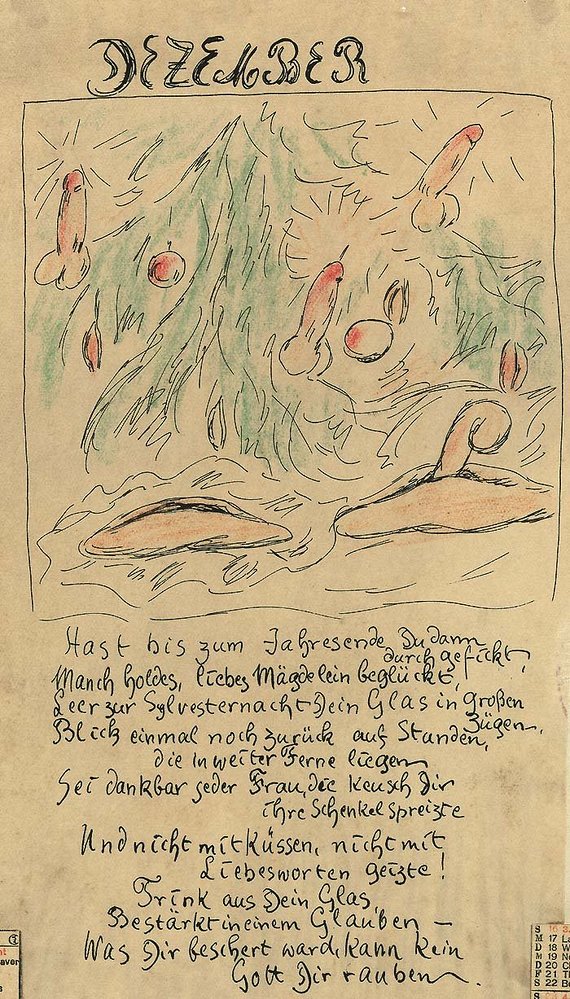 DEZEMBER
Hast bis zum Jahresende Du dann
durch gefickt,
Manch holdes, liebes Mägdelein beglückt,
Leer zur Sylvesternacht Dein Glas in großen
Zügen.
Blick einmal noch zurück auf Stunden,
die in weiter Ferne liegen
Sei dankbar jeder Frau, die keusch Dir
ihre Schenkel spreizte
Und nicht mit Küssen, nicht mit
Liebesworten geizte!
Trink aus Dein Glas,
Bestärkt in einem Glauben —
Was Dir beschert ward, kann kein
Gott Dir rauben.
aver
S 16 3.
M 17 La
D 18 W
M 19 Ne
D 20 Ch
F 21 Th
S 22 Be